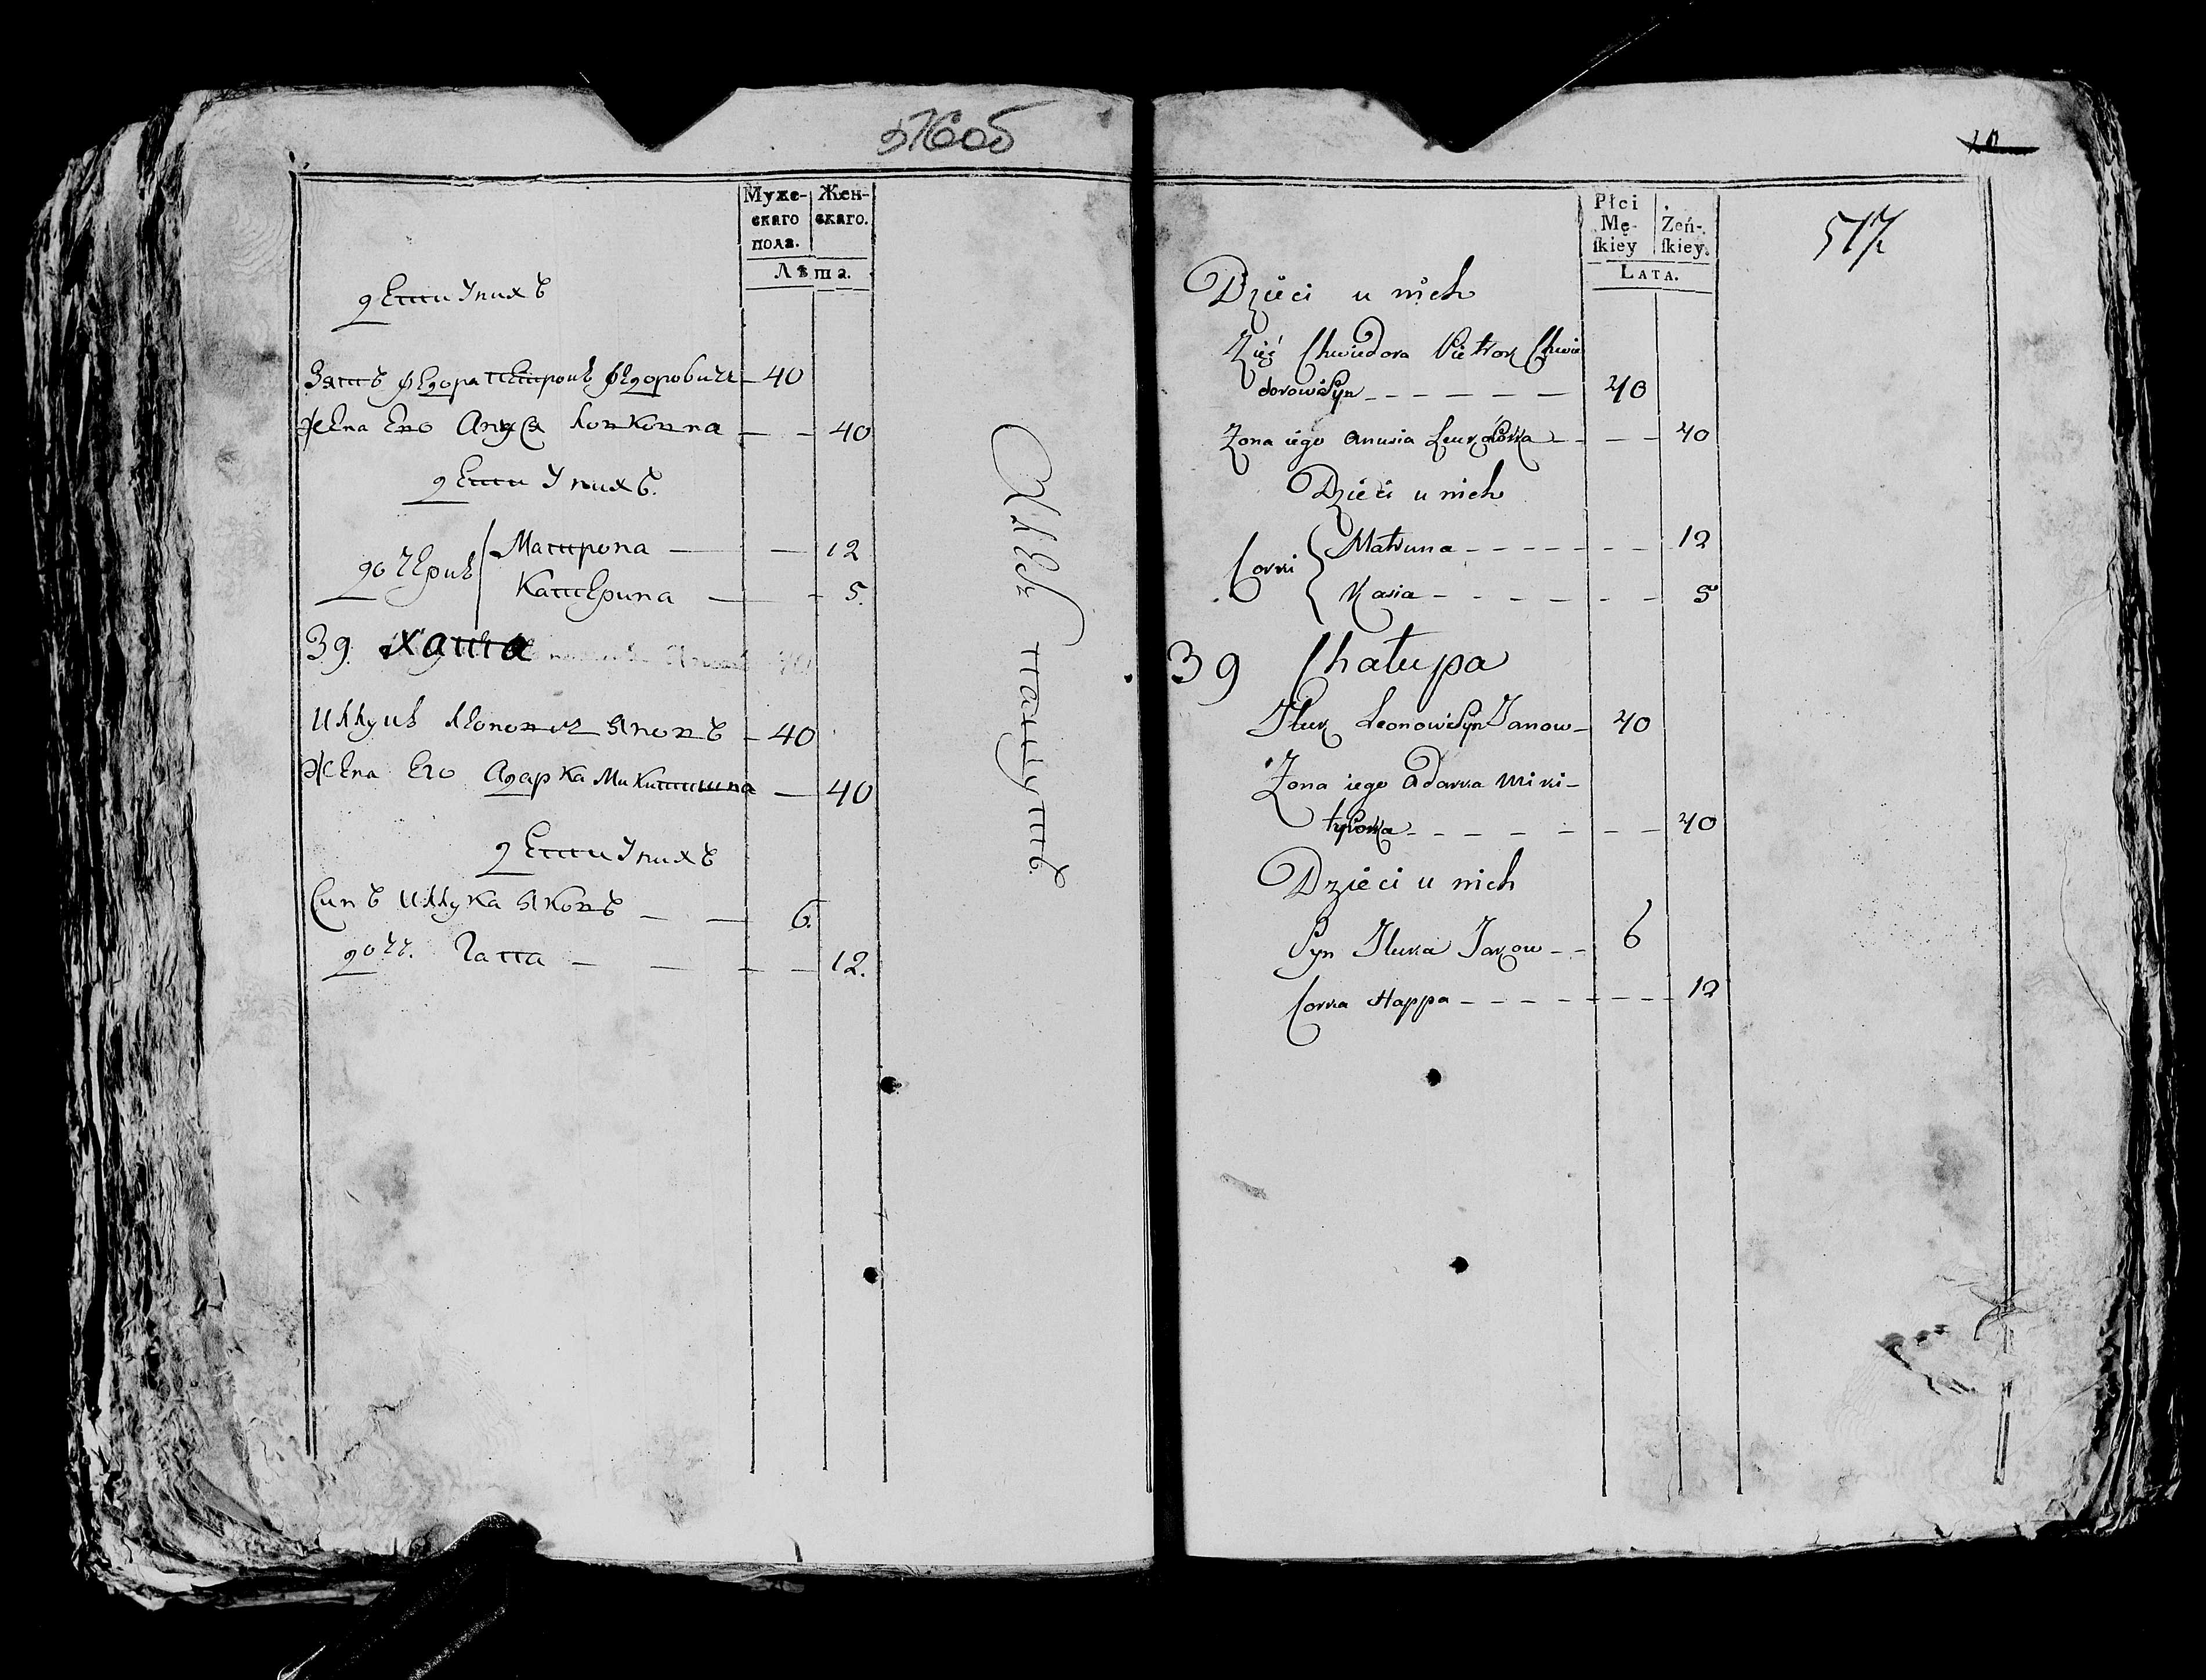 516об
Муже-
скаго
пола.
Жен-
скаго.
Лѣта.
дети Унихъ
Зять федора петрокъ федоровичъ 40
Жена Его Ануся 40
дети Унихъ.
дочеркѣ
Матрона 12
Катерина 5.
39. хата
Илукъ Леонович Яновъ 40
Жена Его Адарка Микитишна 40
дети Унихъ
Синъ Иллука Яковъ 6.
доч. Гапа 12.
517
Płci
Mę-
skiey
Żeń-
skiey.
LATA.
Dzieci u nich
Zięć Chwiedora Pietrok Chwie
dorow Syn 40
Zona iego Anusia 40
Dzieci u nich
Corki
Matruna 12
Kasia 5
39 Chałupa
Iluk Leonow Syn Janow 40
Zona iego Adarka Miki-
tycowa 40
Dzieci u nich
Syn Iluka Jakow 6
Corka Happa 12